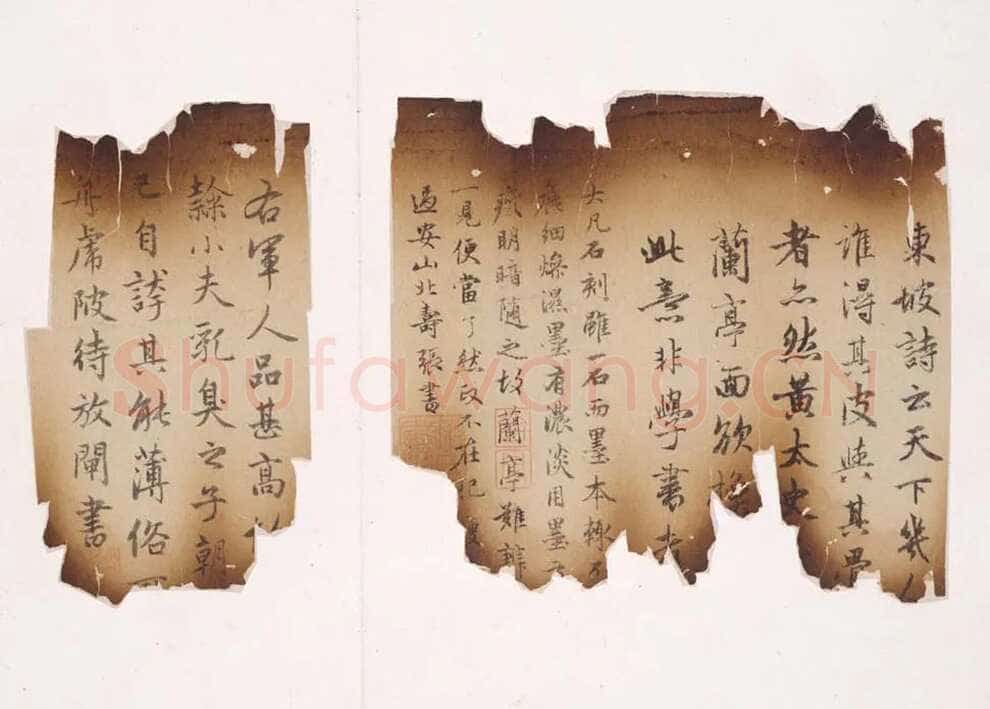 東坡詩云天下幾人
誰得其皮與其骨
者亦然黄太史
蘭亭面欲換
此意非學書者
大凡石刻雖一石而墨本輒不
麄細燥濕墨有濃淡用墨
瘦明暗隨之故蘭亭難辨
一見便當了然政不在肥
過安山北壽張書
右軍人品甚高
隸小夫乳臭之子朝
已自誇其能薄俗可
舟虎陂待放閘書
Shufawang.CN